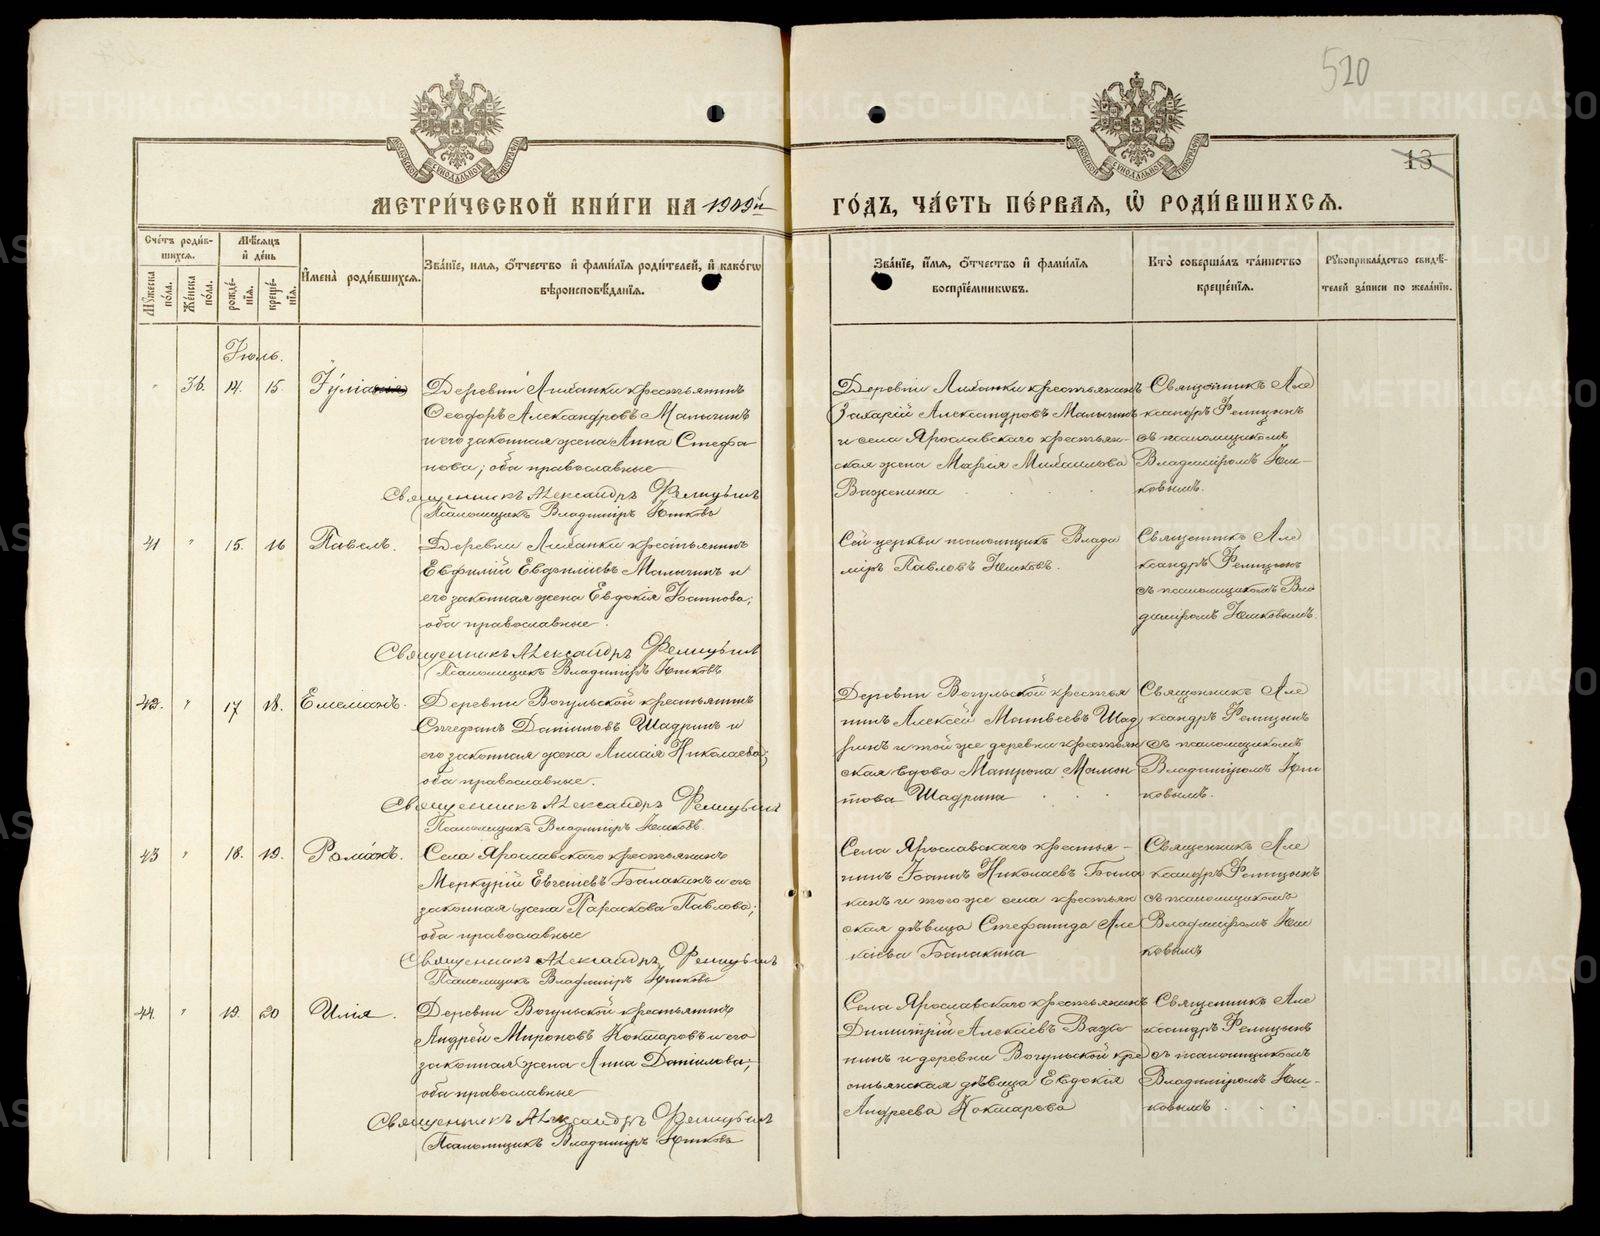 520
13
МОСКОВСКОЙ СѴНОДАЛЬНОЙ ТИПОГРАФІИ
МОСКОВСКОЙ СѴНОДАЛЬНОЙ ТИПОГРАФІИ
МЕТРИ́ЧЕСКОЙ КНИ́ГИ НА 1909й
ГО́ДЪ, ЧА́СТЬ ПЕ́РВАѦ, Ѡ РОДИ́ВШИХСѦ.
Сче́тъ роди́в-
шихсѧ.
Мѣ́сѧцъ
и҆ де́нь
Мꙋ́жеска по́ла.
Же́нска по́ла.
рожде́-
нїѧ.
креще́-
нїѧ.
И҆мена̀ роди́вшихсѧ.
Зва́нїе, и҆мѧ, о҆́тчество и҆ фами́лїѧ роди́телей, и҆ како́гѡ
вѣроисповѣ́данїѧ.
Зва́нїе, и҆́мѧ, о҆́тчество и҆ фами́лїѧ
воспрїе́мникѡвъ.
Кто̀ соверша́лъ та́инство
креще́нїѧ.
Рꙋкоприкла́дство свидѣ́-
телей за́писи по жела́нїю.
Іюль.
" 36. 14. 15. Іулія
Деревни Лиханки крестьянинъ
Ѳеодоръ Александровъ Малыгинъ
и его законная жена Анна Стефа
нова; оба православные
Священникъ Александръ Фелицынъ
Псаломщикъ Владиміръ Юшковъ
Деревни Лиханки крестьянинъ
Захарій Александровъ Малыгинъ
и села Ярославскаго крестьян-
ская жена Марія Михаилова
Важенина
Священникъ Але
ксандръ Фелицынъ
съ псаломщикомъ
Владиміромъ Юш-
ковымъ.
41 " 15. 16 Павелъ.
Деревни Лиханки крестьянинъ
Евфимій Евфиміевъ Малыгинъ и
его законная жена Евдокія Іоаннова;
оба православные.
Священникъ Александръ Фелицынъ
Псаломщикъ Владиміръ Юшковъ
Сей церкви псаломщикъ Влади
міръ Павловъ Юшковъ.
Священникъ Але
ксандръ Фелицынъ
съ псаломщикомъ Вла
диміромъ Юшковымъ.
42. " 17 18. Емеліанъ.
Деревни Вогульской крестьянинъ
Стефанъ Даниловъ Шадринъ и
его законная жена Николаева;
оба православные.
Священникъ Александръ Фелицынъ
Псаломщикъ Владиміръ Юшковъ.
Деревни Вогульской крестья
нинъ Алексѣй Матвѣевъ Шад
ринъ и той же деревни крестьян
ская вдова Матрона Мамон
това Шадрина
Священникъ Але
ксандръ Фелицынъ
съ псаломщикомъ
Владиміромъ Юш
ковымъ.
43 " 18. 19. Романъ.
Села Ярославскаго крестьянинъ
Меркурій Евгеніевъ Балакинъ и его
законная жена Параскова Павлова;
оба православные
Священникъ Александръ Фелицынъ
Псаломщикъ Владиміръ Юшковъ
Села Ярославскаго крестья-
нинъ Іоаннъ Николаевъ Бала
кинъ и того же села крестьян
ская дѣвица Стефанида Але
ксіева Балакина
Священникъ Але
ксандръ Фелицынъ
съ псаломщикомъ
Владиміромъ Юш
ковымъ
44. " 19. 20 Илія.
Деревни Вогульской крестьянинъ
Андрей Мироновъ Кокшаровъ и его
законная жена Анна Данилова;
оба православные
Священникъ Александръ Фелицынъ
Псаломщикъ Владиміръ Юшковъ
Села Ярославскаго крестьянинъ
Димитрій Алексіевъ Важе
нинъ и деревни Вогульской кре
стьянская дѣвица Евдокія
Андреева Кокшарова
Священникъ Але
ксандръ Фелицынъ
съ псаломщикомъ
Владиміромъ Юш-
ковымъ.
METRIKI.GASO-URAL.RU